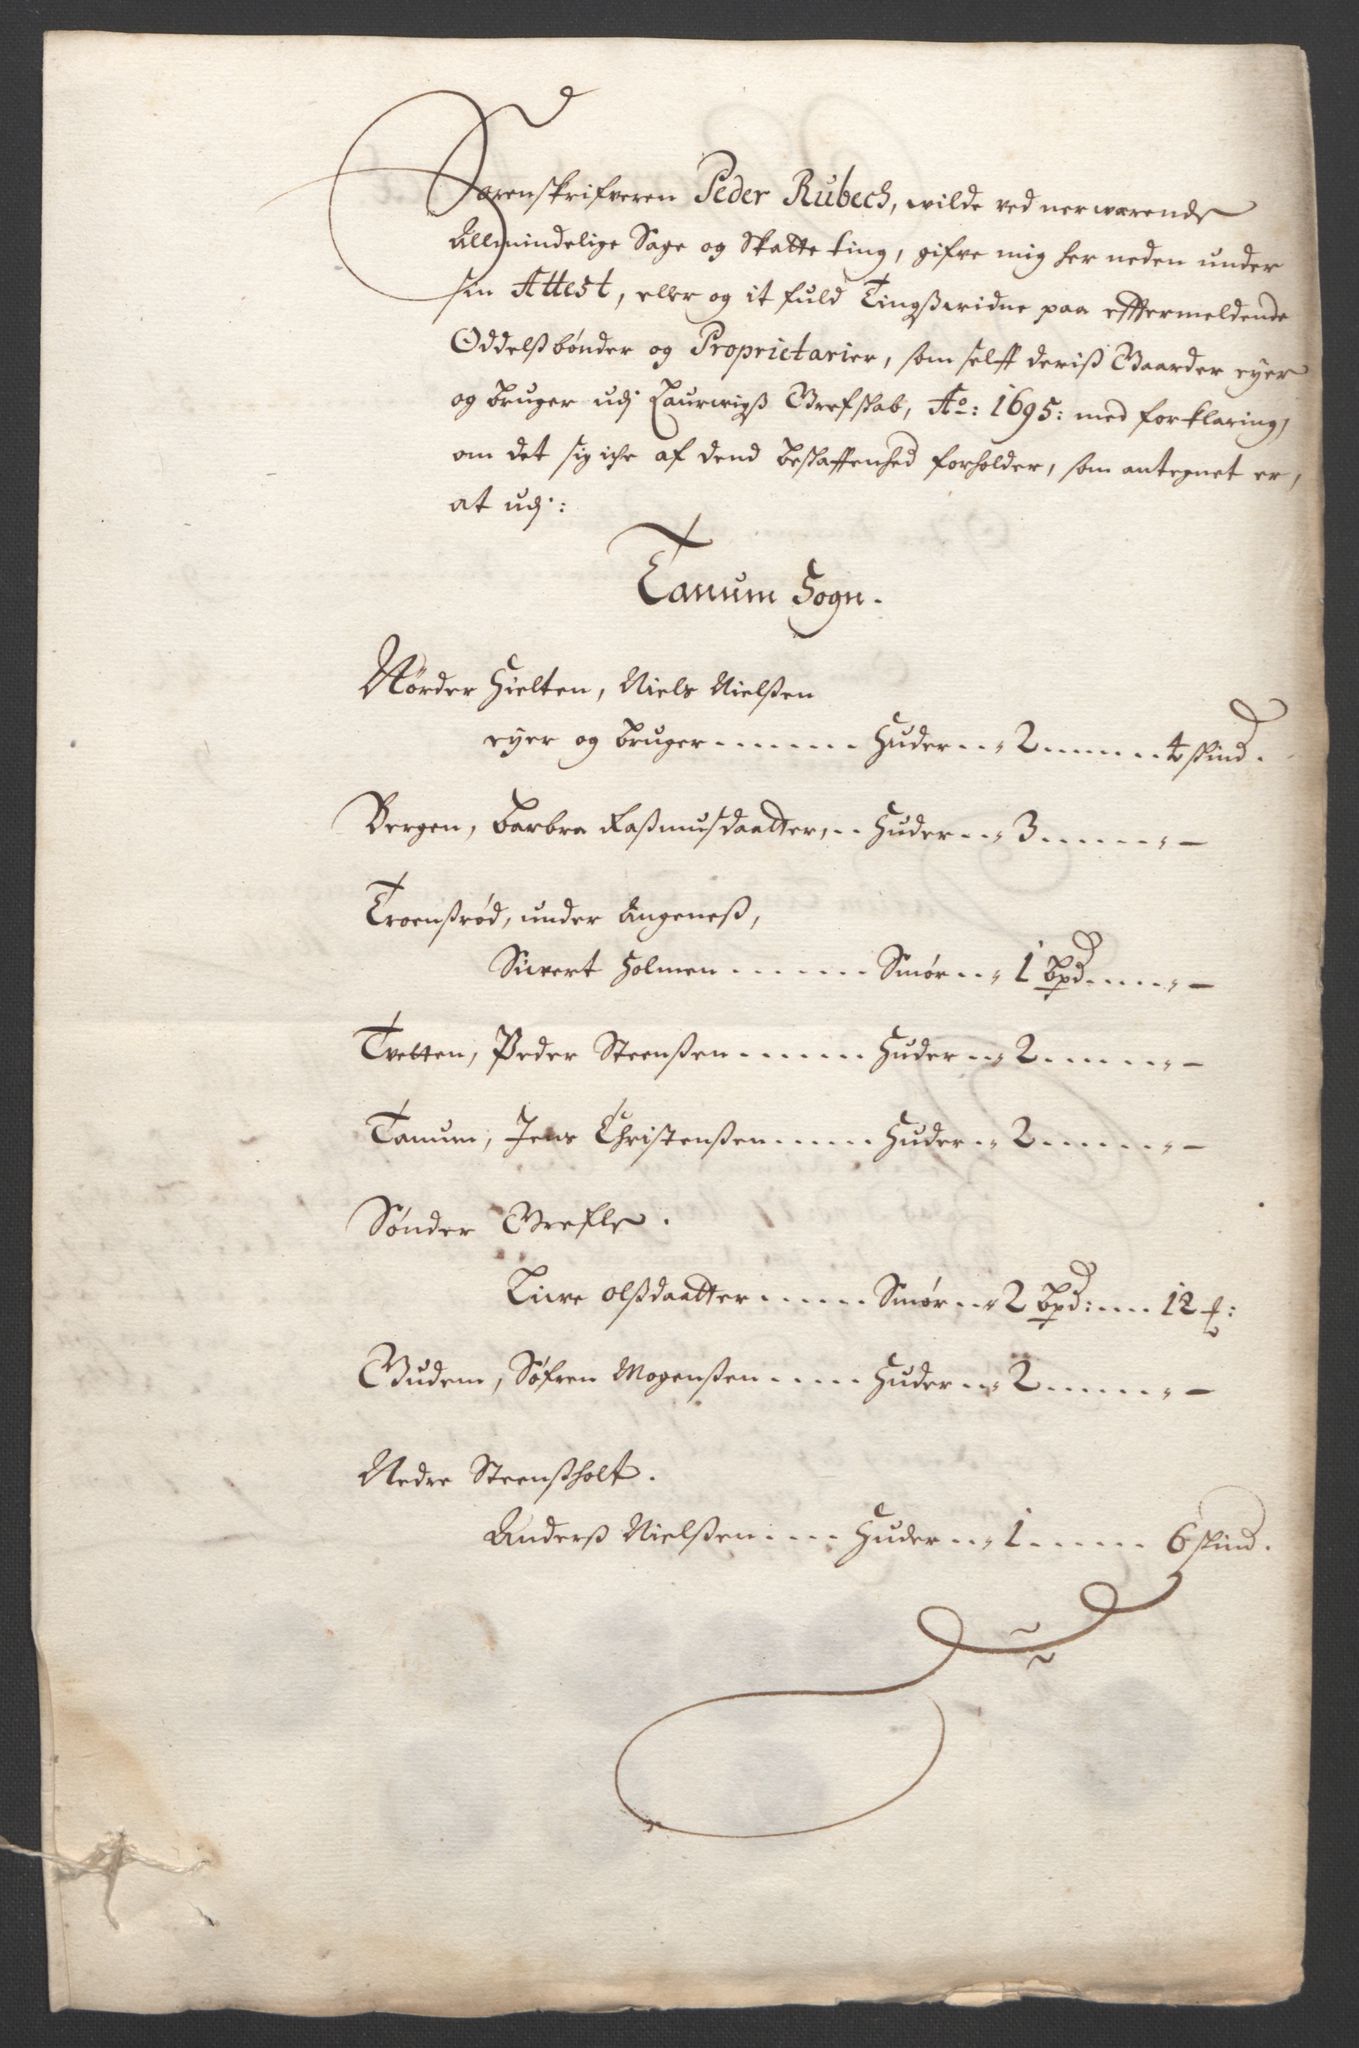 Sorenskrifveren Peder Rubech, wilde ved nerwærende
Allmindelige Sage og Skatte ting, gifve mig her neden under
sin Attest, eller og it fuld Tingßwidne paa effermeldende
Oddelßbønder og Proprietarier, som selff deriß Gaarder eyer
og bruger udj Laurwigß Grefskab, Ao: 1695: med forklaring,
om det sig iche af dend beskaffenhed forholder, som antegnet er,
at udj:
Tanum Sogn.
Nörder Hielten, Niels Nielßen
eyer og bruger ...... Huder .. 2 ..... 4 skind.
Bergen, Barbra Raßmusdaatter, .. Huder .. 3 ..... -
Troenßrød, under Angeneß,
Siwert Holmen ...... Smør .. 1 bpd ..... -
Tvetten, Peder Steenßen ...... Huder .. 2 ..... -
Tanum, Jens Christenßen ..... Huder .. 2 ..... -
Sönder Grefle.
Liwe olßdaatter ...... Smør .. 2 bpd: ... 12 
Gudem, Søfren Mogenßen ..... Huder .. 2 ..... -
Nedre Steenßholt.
Anderß Nielßen .... Huder .. 1 ...... 6 skind.